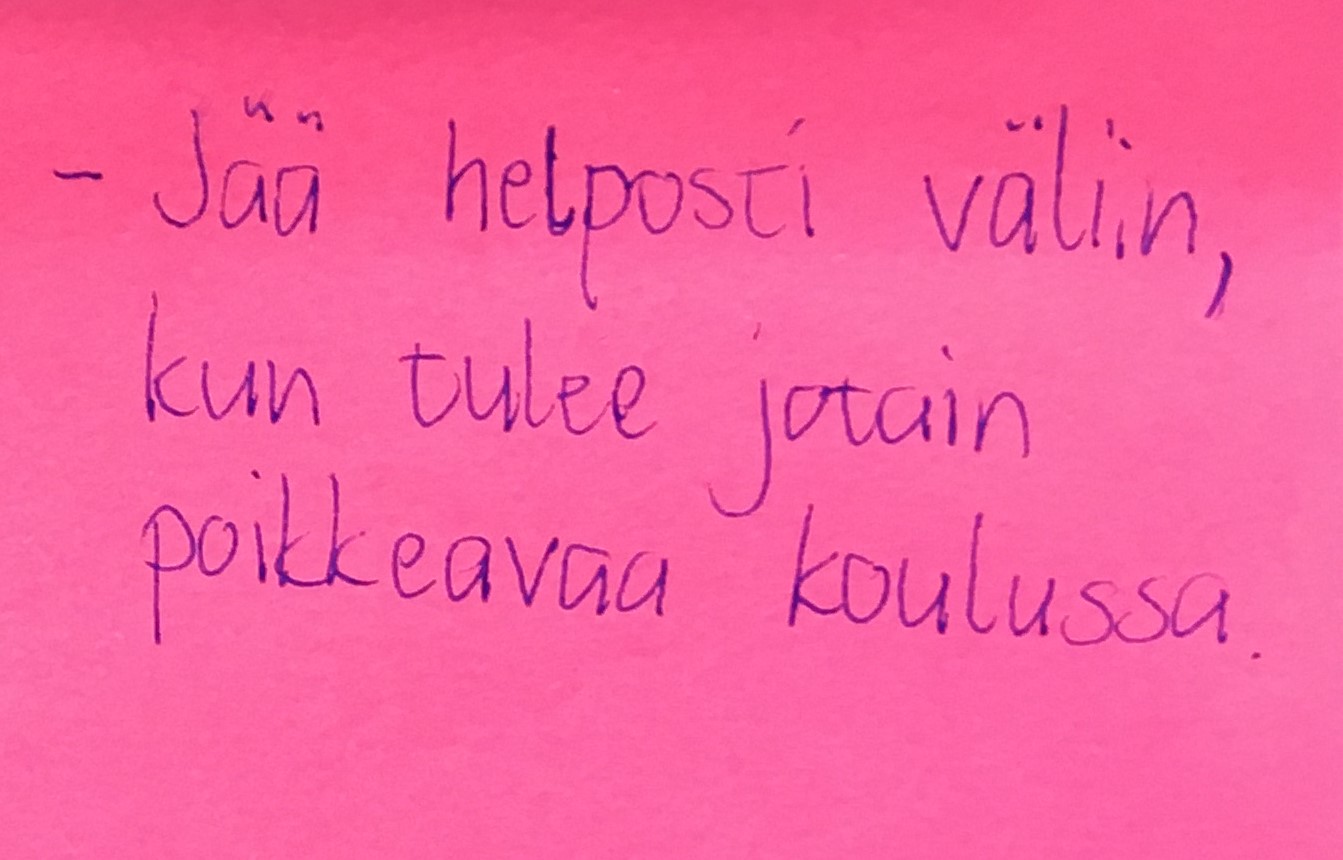 - Jää helposti väliin,
kun tulee jotain
poikkeavaa koulussa.